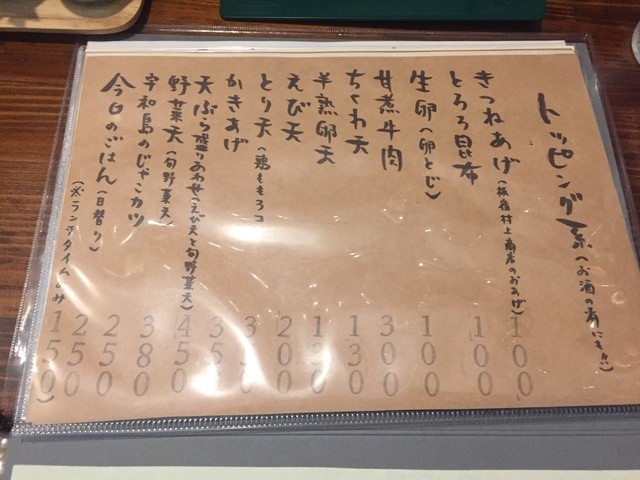 トッピング系(お酒の肴にも!!)
きつねあげ(板宿村上商店のおあげ) 100
とろろ昆布 100
生卵(卵とじ) 100
甘煮牛肉 300
ちくわ天 130
半熟卵天
えび天 200
とり天(鶏もも
かきあげ 350
天ぷら盛りあわせ(えび天と旬野菜天) 450
野菜天(旬野菜天) 380
宇和島のじゃこカツ 250
今日のごはん(日替り) 250
(※ランチタイムのみ 150)